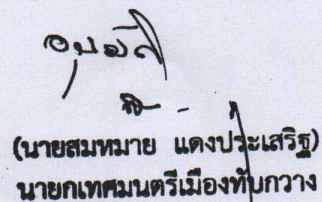 อนุมัติ
(นายสมหมาย แดงประเสริฐ)
นายกเทศมนตรีเมืองทับกวาง